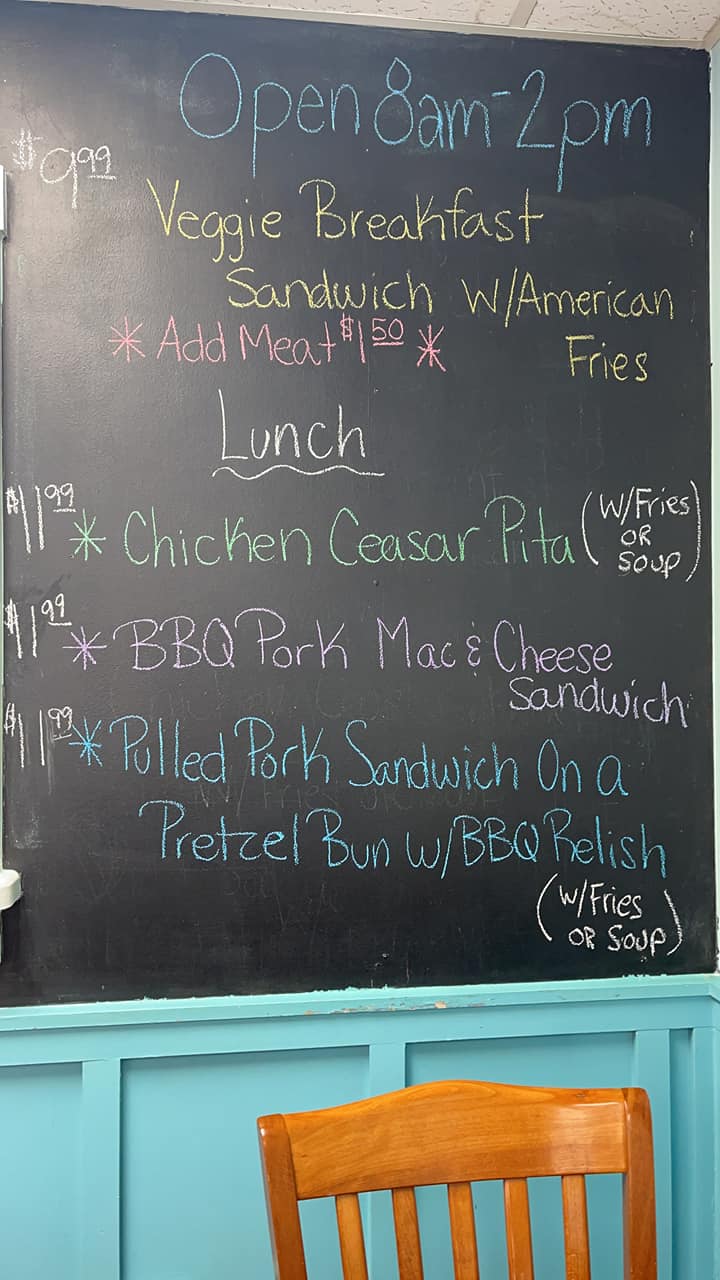 Open 8am-2pm
$9.99
Veggie Breakfast
Sandwich W/American
Fries
* Add Meat $1.50 *
Lunch
$11.99 * Chicken Ceasar Pita (W/Fries
OR
Soup)
$11.99 * BBQ Pork Mac & Cheese
Sandwich
$11.99 * Pulled Pork Sandwich On a
Pretzel Bun w/BBQ Relish
(W/Fries
OR Soup)